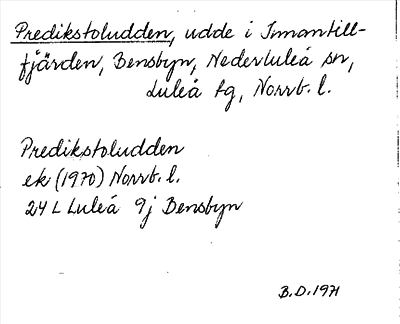 Predikstoludden, udde i Inmantill-
fjärden, Bensbyn, Nederluleå sn,
Luleå tg, Norrb. l.
Predikstoludden
ek (1970) Norrb. l.
24 L Luleå 9j Bensbyn
B.D. 1971